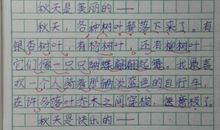 秋天是美丽的——
秋天，各种树叶都落下来了。有
银杏树叶，有杨树叶，还有柳树叶
它们像一只只蝴蝶翩翩起舞。我最喜
欢一个人骑着蓝色的自行车，
在许多落叶乔木之间穿梭，
秋天是快乐的——